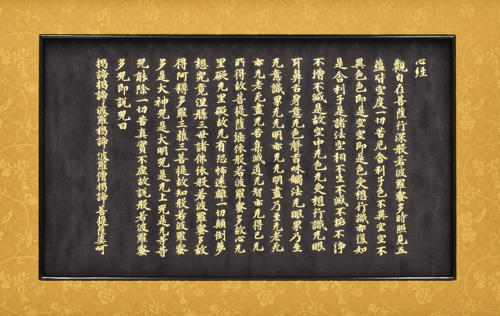 心経
觀自在菩薩行深般若波羅蜜多時照見五
蘊皆空度一切苦厄舍利子色不異空空不
異色色即是空空即是色受想行識亦復如
是舍利子是諸法空相不生不滅不垢不浄
不増不減是故空中无色无受想行識无眼
耳鼻舌身意无色聲香味觸法无眼界乃至
无意識界无无明亦无无明盡乃至无老死
亦无老死盡无苦集滅道无智亦无得以无
所得故菩提薩埵依般若波羅蜜多故心无
罣礙无罣礙故无有恐怖遠離一切顛倒夢
想究竟涅槃三世諸佛依般若波羅蜜多故
得阿耨多羅三藐三菩提故知般若波羅蜜
多是大神咒是大明咒是无上咒是无等等
咒能除一切苦真實不虚故説般若波羅蜜
多咒即説咒曰
揭諦揭諦波羅揭諦波羅僧揭諦菩提薩婆訶